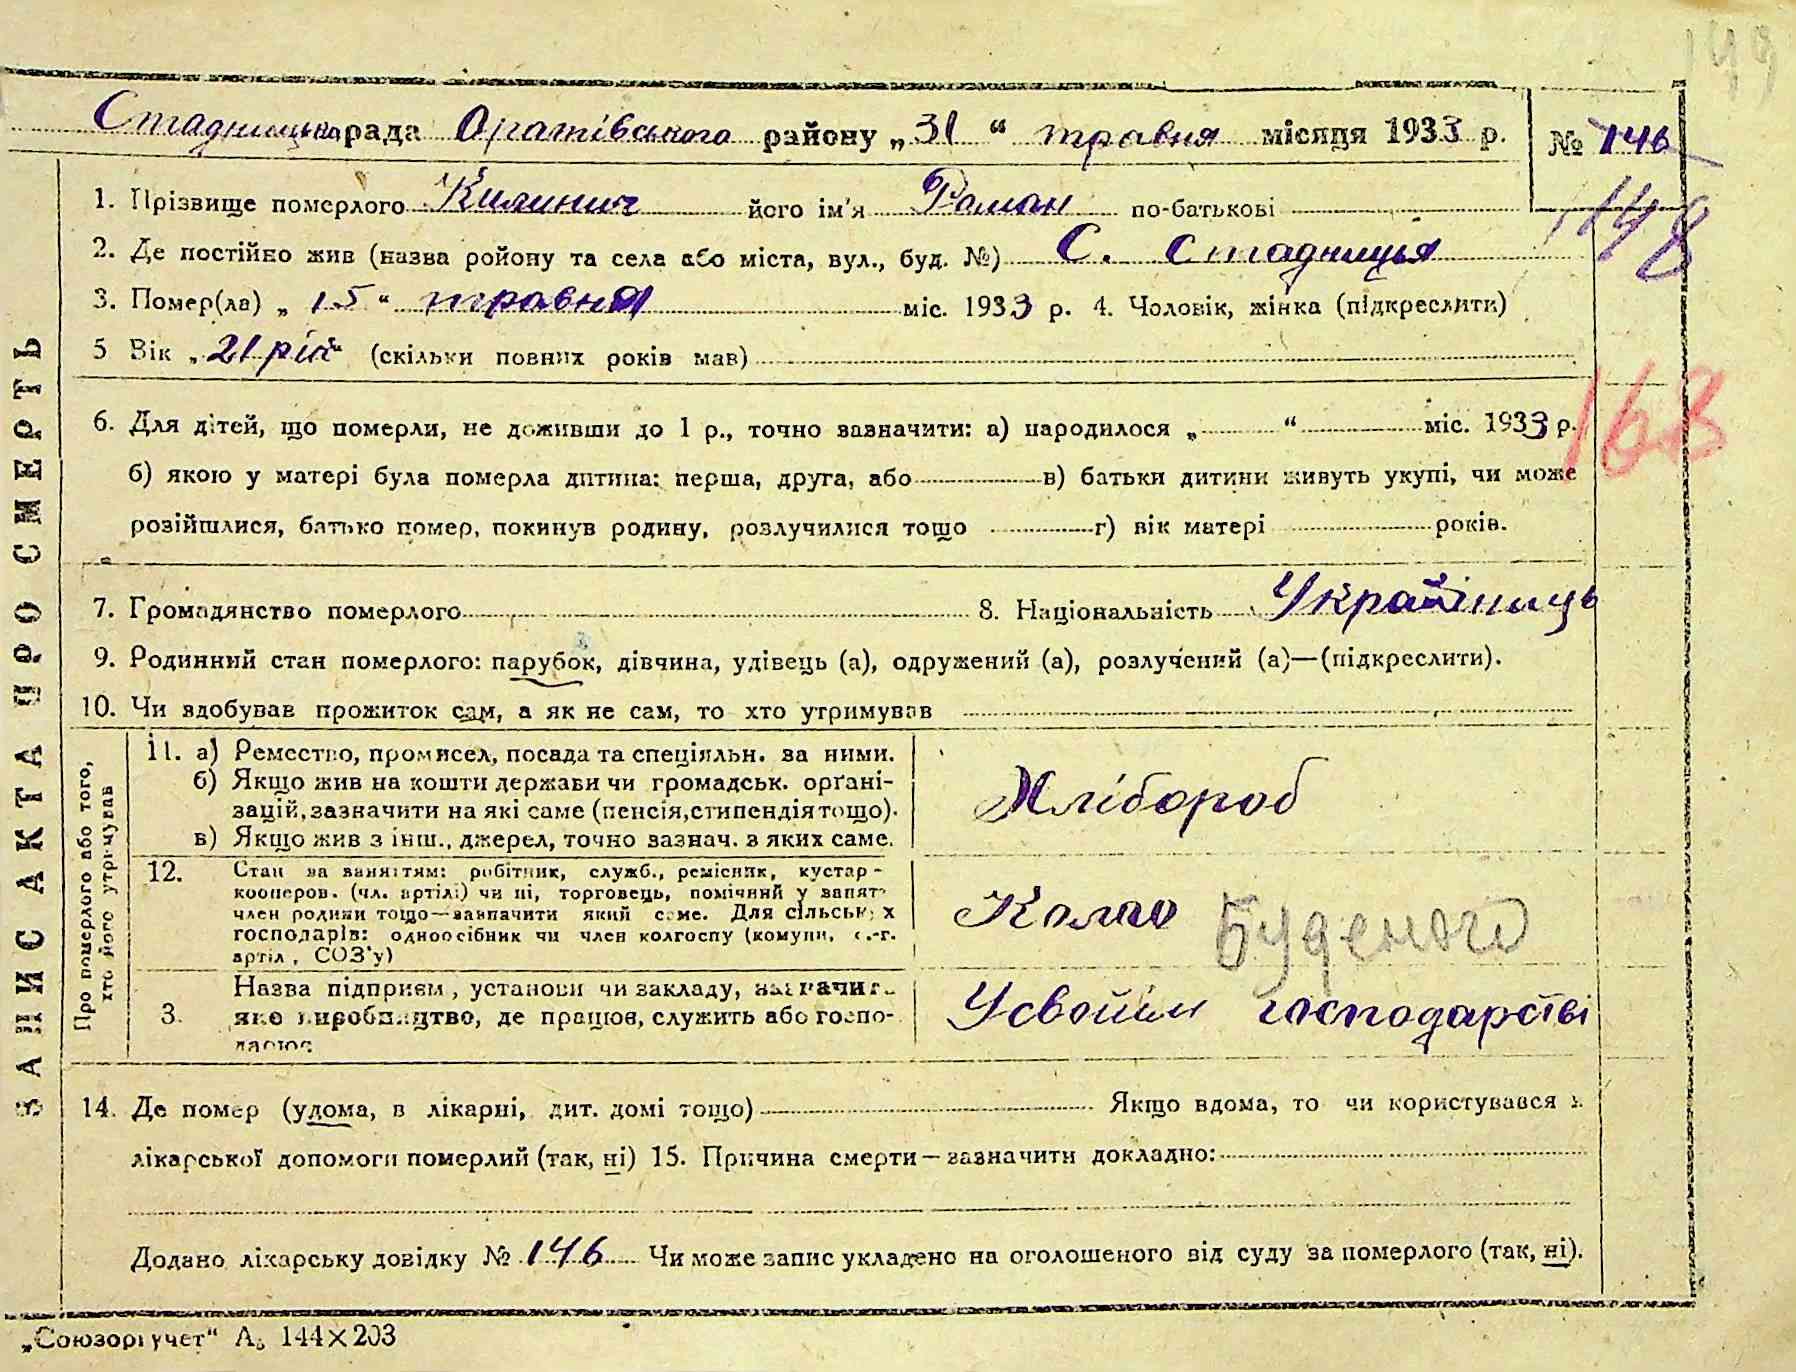 149
Стадницька рада Оратівського району „31“ травня місяця 1933 р. № 146
148
1. Прізвище померлого Килинич його ім'я Роман по-батькові
2. Де постійно жив (назва ройону та села або міста, вул., буд. №) С. Стадниця
3. Помер(ла) „15“ травня міс. 1933 р. 4. Чоловік, жінка (підкреслити)
5 Вік „21 рік“ (скільки повних років мав)
168
6. Для дітей, що померли, не доживши до 1 р., точно зазначити: а) народилося „ “ міс. 1933 р.
б) якою у матері була померла дитина: перша, друга, або в) батьки дитини живуть укупі, чи може
розійшлися, батько помер, покинув родину, розлучилися тощо г) вік матері років.
7. Громадянство померлого 8. Національність Українець
9. Родинний стан померлого: парубок, дівчина, удівець (а), одружений (а), розлучений (а)—(підкреслити).
10. Чи здобував прожиток сам, а як не сам, то хто утримував
ЗАПИС АКТА ПРО СМЕРТЬ
Про померлого або того,
хто його утримував
11. а) Ремество, промисел, посада та спеціяльн. за ними.
б) Якщо жив на кошти держави чи громадськ. орґані-
зацій, зазначити на які саме (пенсія, стипендія тощо).
в) Якщо жив з інш., джерел, точно зазнач. з яких саме.
Хлібороб
12. Стан за заняттям: робітник, служб., ремісник, кустар-
кооперов. (чл. артілі) чи ні, торговець, помічний у занят.
член родини тощо—зазначити який саме. Для сільських
господарів: одноосібник чи член колгоспу (комуни, с.-г.
артіл, СОЗ'у)
Буденого
3. Назва підприєм, установи чи закладу, зазначит.
яке виробництво, де працює, служить або госпо-
дарює
Усвоїм господарстві
14. Де помер (удома, в лікарні, дит. домі тощо) Якщо вдома, то чи користувався з
лікарської допомоги померлий (так, ні) 15. Причина смерти—зазначити докладно:
Додано лікарську довідку № 146 Чи може запис укладено на оголошеного від суду за померлого (так, ні).
„Союзоргучет“ А5 144×203